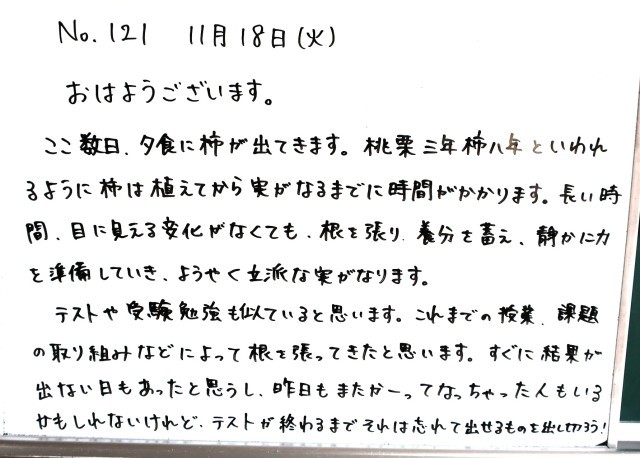 No.121 11月18日(火)
おはようございます。
ここ数日、夕食に柿が出てきます。桃栗三年柿八年といわれ
るように柿は植えてから実がなるまでに時間がかかります。長い時
間、目に見える変化がなくても、根を張り、養分を蓄え、静かに力
を準備していき、ようやく立派な実がなります。
テストや受験勉強も似ていると思います。これまでの授業、課題
の取り組みなどによって根を張ってきたと思います。すぐに結果が
出ない日もあったと思うし、昨日もまたかーってなっちゃった人もいる
かもしれないけれど、テストが終わるまでそれは忘れて出せるものを出し切ろう!